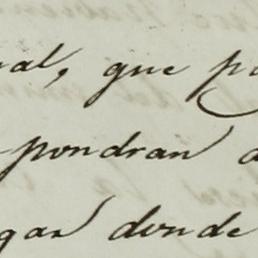 al, que p
pondran a
gar donde